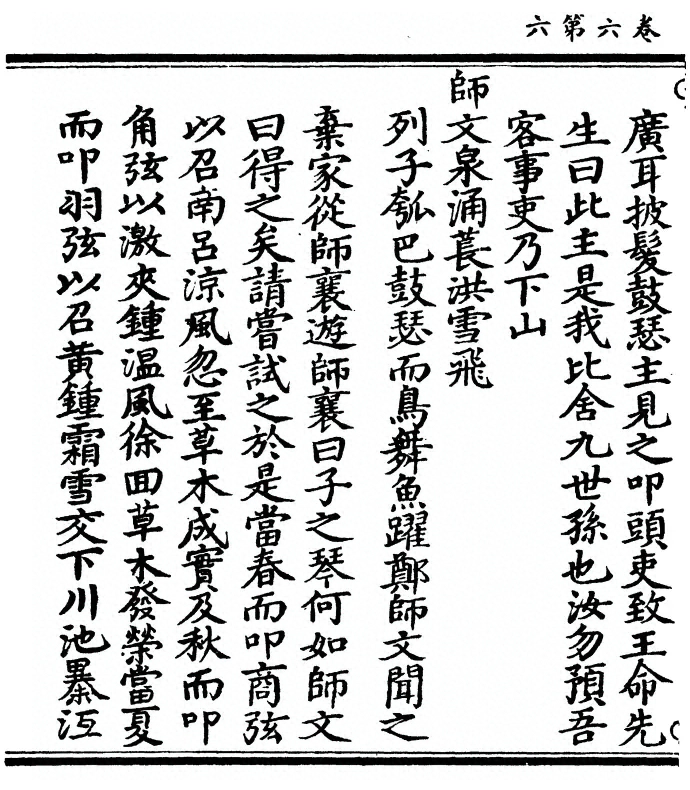 卷六第六
廣耳披髮鼓瑟主見之叩頭吏致王命先
生曰此主是我比舍九世孫也汝勿預吾
客事吏乃下山
師文泉涌萇洪雪飛
列子瓠巴鼓瑟而鳥舞魚躍鄭師文聞之
棄家從師襄遊師襄曰子之琴何如師文
曰得之矣請嘗試之於是當春而叩商弦
以召南呂涼風忽至草木成實及秋而叩
角弦以激夾鍾温風徐回草木發榮當夏
而叩羽弦以召黃鍾霜雪交下川池暴沍